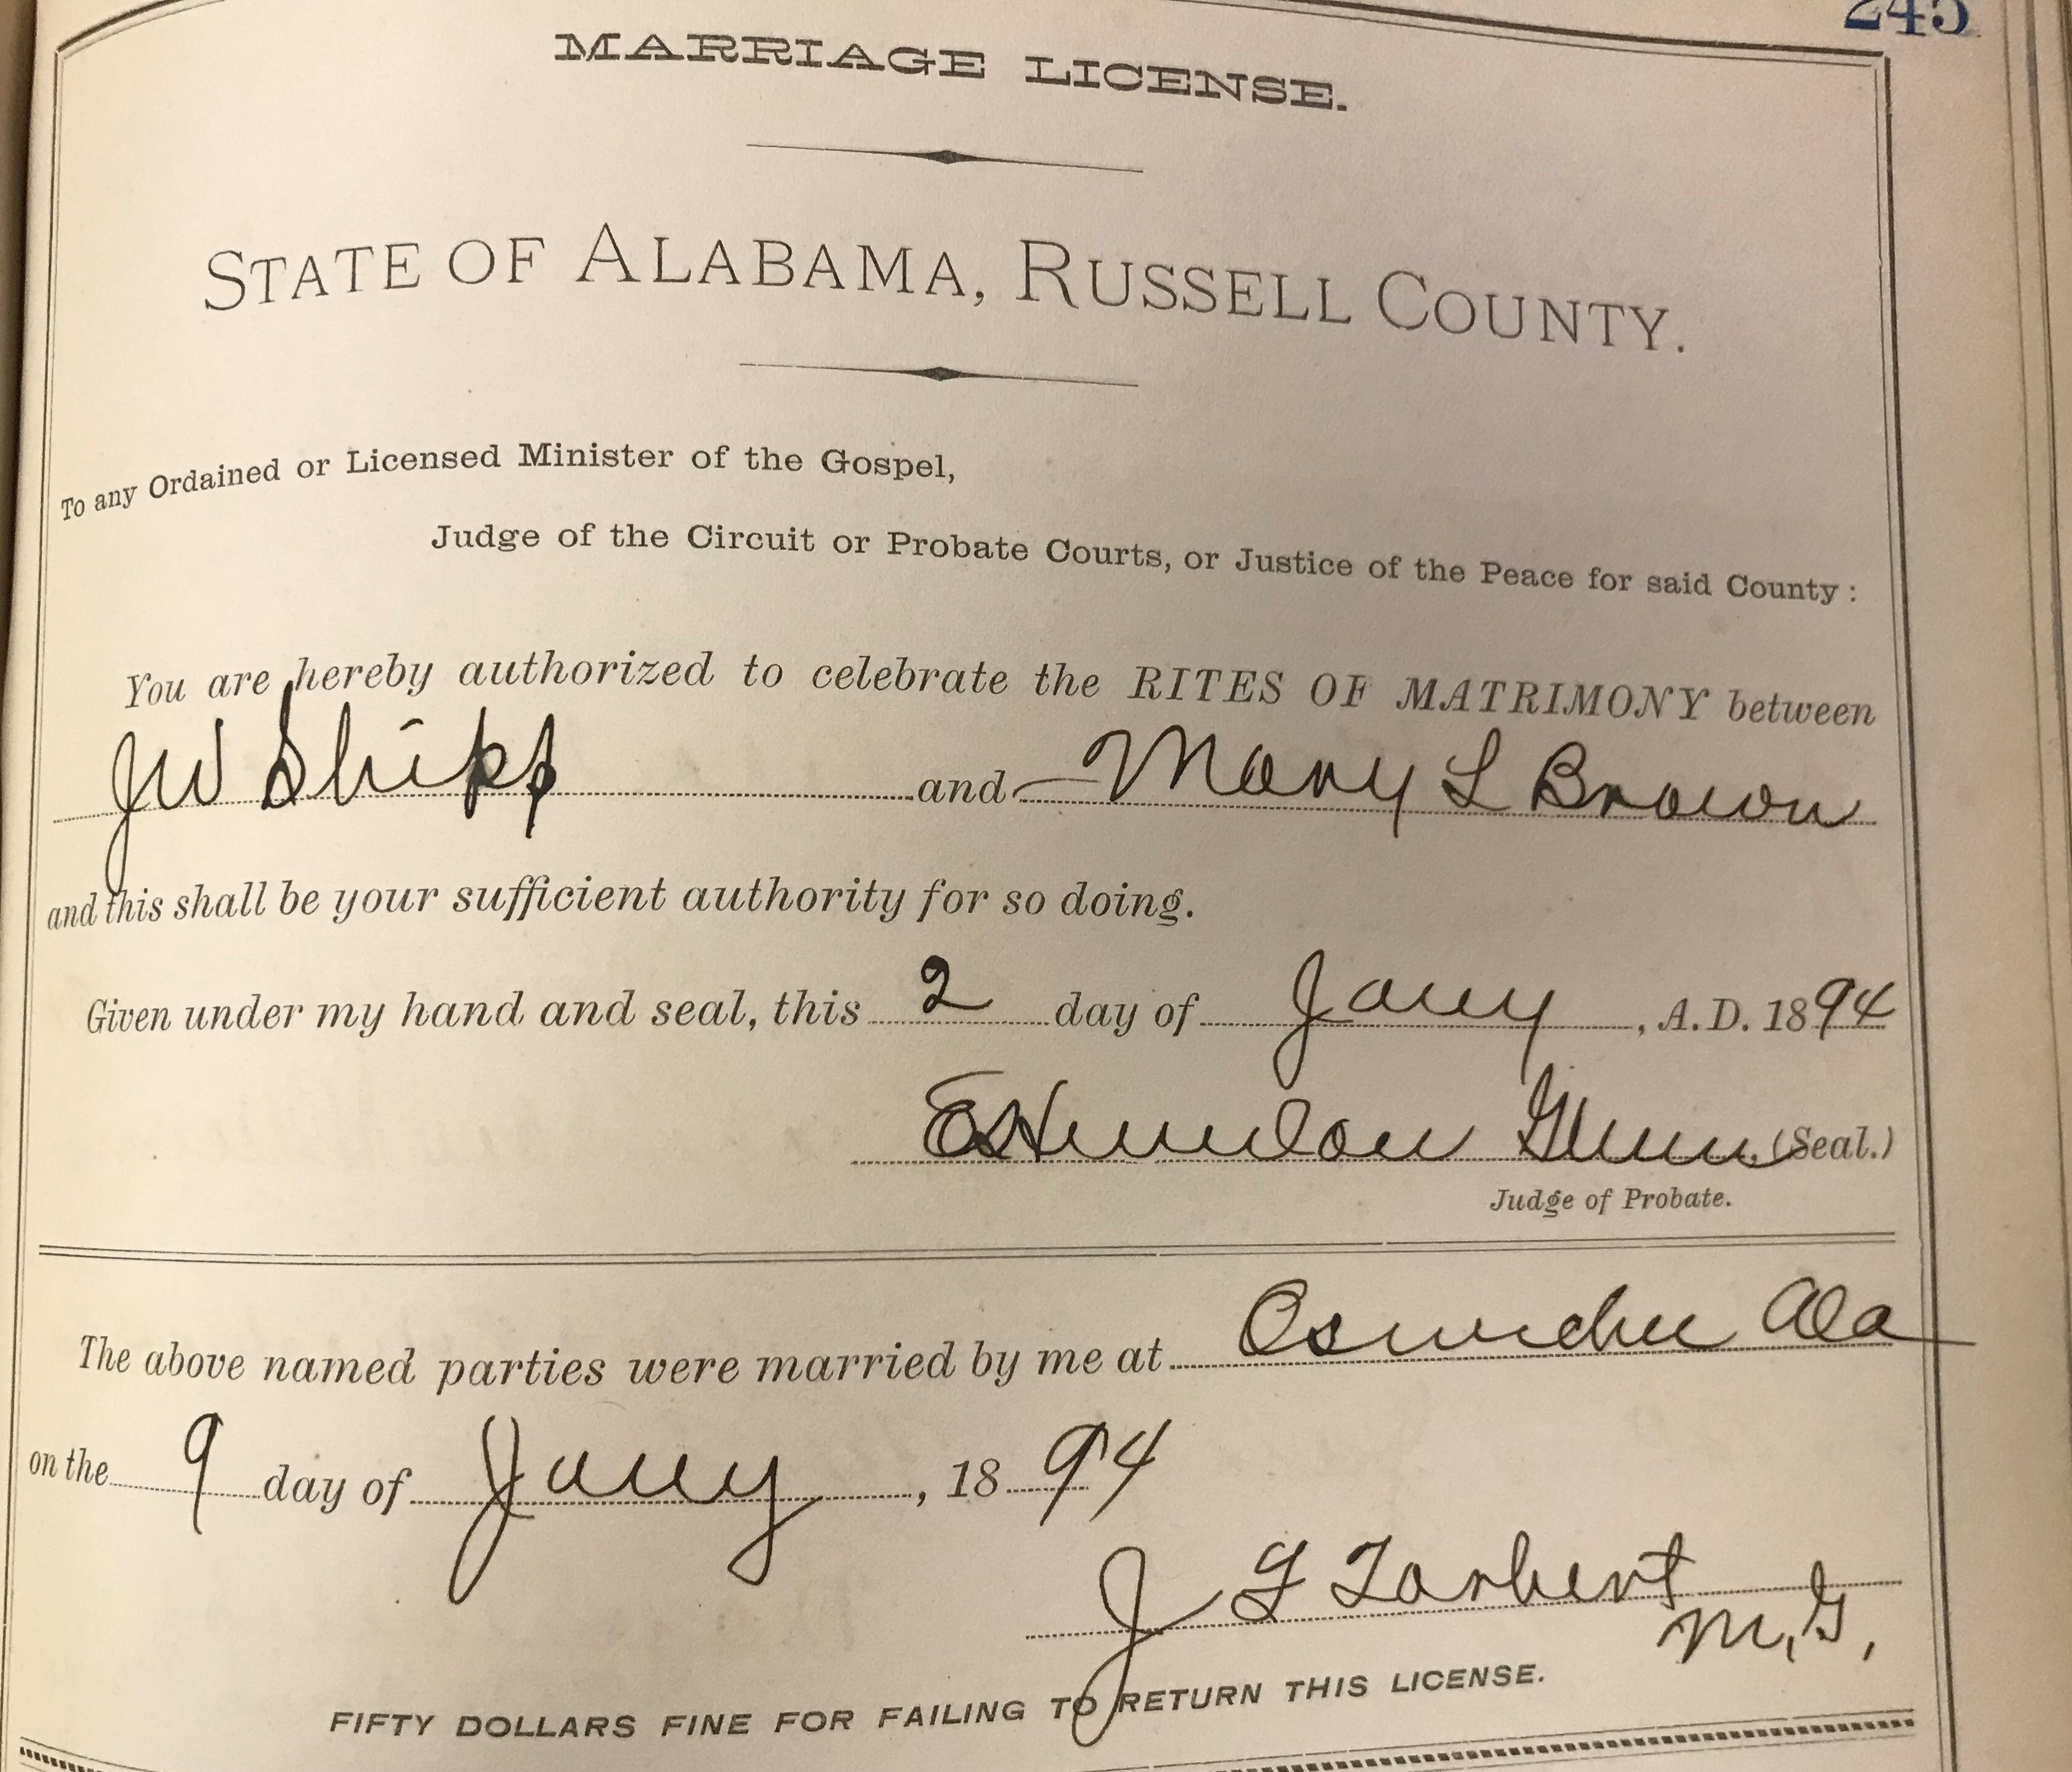 245
MARRIAGE LICENSE.
STATE OF ALABAMA, RUSSELL COUNTY.
To any Ordained or Licensed Minister of the Gospel,
Judge of the Circuit or Probate Courts, or Justice of the Peace for said County :
You are hereby authorized to celebrate the RITES OF MATRIMONY between
JW Shipp and Mary L Brown
and this shall be your sufficient authority for so doing.
Given under my hand and seal, this 2 day of Jany, A.D. 1894
(Seal.)
Judge of Probate.
The above named parties were married by me at Oswichee Ala
on the 9 day of Jany, 1894
J F Tarbert
M.G.
FIFTY DOLLARS FINE FOR FAILING TO RETURN THIS LICENSE.